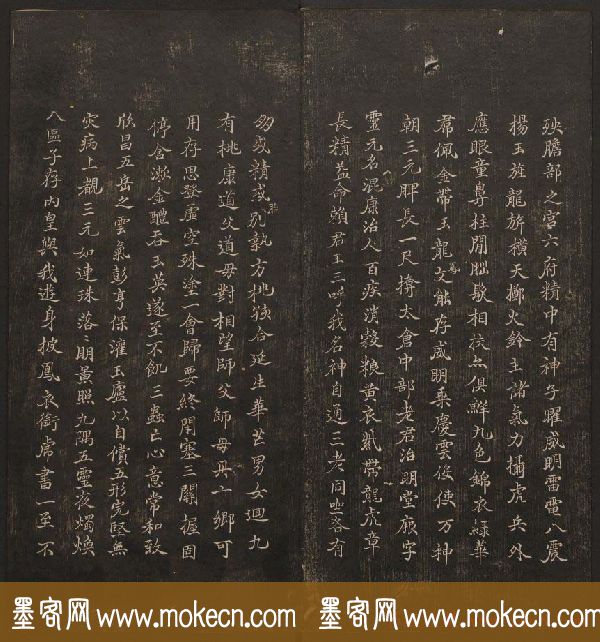 殃膽部之宮六府精中有神子曜威明雷電八震
揚玉旌龍旂橫天擲火鈴主諸氣力攝虎兵外
應眼童鼻柱間腦髮相扶亦俱鮮九色錦衣綠華
帬佩金帶玉龍虎文能存威明乘慶雲役使万神
朝三元脾長一尺揜太倉中部老君治明堂厥字
靈元名混康治人百疾消穀粮黃衣紫帶龍虎章
長精益命賴君王三呼我名神自通三老同坐各有
朋或精或胎別執方桃孩合延生華芒男女迴九
有桃康道父道母對相望師父師母丹玄鄉可
用存思登虛空殊塗一會歸要終閉塞三關握固
停含漱金醴吞玉英遂至不飢三蟲亡心意常和致
欣昌五岳之雲氣彭亨保灌玉廬以自償五形完堅無
灾病上覩三元如連珠落〻朋景照九隅五靈夜燭煥
八區子存內皇與我遊身披鳳衣銜虎書一至不
墨客网 www.mokecn.com 墨客网 www.mokecn.com